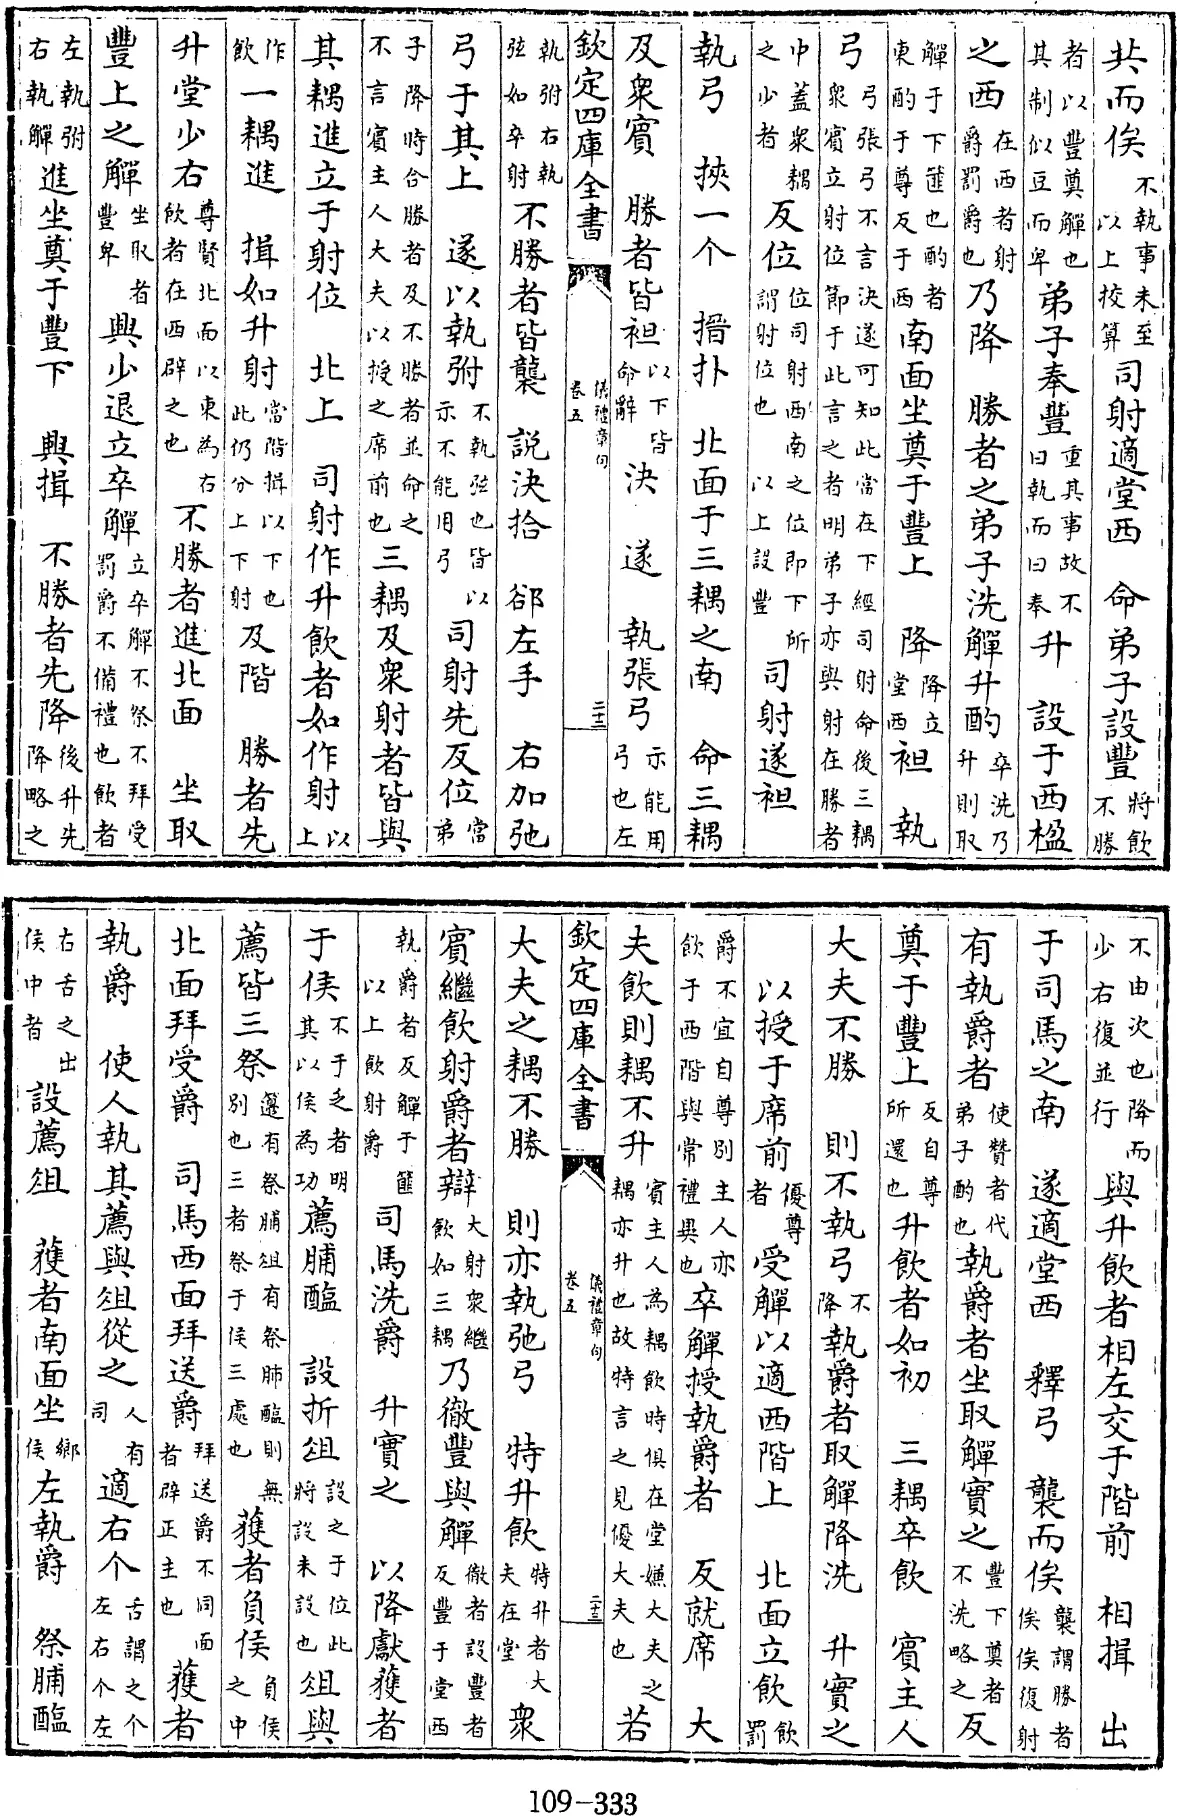 共而俟不執事未至以上挍算司射適堂西　命弟子設豐將飲不勝
者以豐奠觶也其制似豆而卑弟子奉豐重其事故不曰執而曰奉升　設于西楹
之西在西者射爵罰爵也乃降　勝者之弟子洗觶升酌卒洗乃升則取
觶于下篚也酌者東酌于尊反于西南面坐奠于豐上　降降立堂西袒　執
弓弓張弓不言決遂可知此當在下經司射命後三耦衆賓立射位節于此言之者明弟子亦與射在勝者
中蓋衆耦之少者反位位司射西南之位即下所謂射位也　以上設豐司射遂袒
執弓　挾一个　搢扑　北面于三耦之南　命三耦
及衆賓　勝者皆袒以下皆命辭決　遂　執張弓示能用弓也左
欽定四庫全書　儀禮章句卷五　二十二
執弣右執弦如卒射不勝者皆襲　説決拾　郤左手　右加弛
弓于其上　遂以執弣不執弦也皆以示不能用弓司射先反位當弟
子降時合勝者及不勝者並命之不言賓主人大夫以授之席前也三耦及衆射者皆與
其耦進立于射位　北上　司射作升飲者如作射以上
作飲一耦進　揖如升射當階揖以下也此仍分上下射及階　勝者先
升堂少右尊賢北面以東為右飲者在西辟之也不勝者進北面　坐取
豐上之觶坐取者豐卑興少退立卒觶立卒觶不祭不拜受罰爵不備禮也飲者
左執弣右執觶進坐奠于豐下　興揖　不勝者先降後升先降略之
不由次也降而少右復並行與升飲者相左交于階前　相揖　出
于司馬之南　遂適堂西　釋弓　襲而俟襲謂勝者俟俟復射
有執爵者使贊者代弟子酌也執爵者坐取觶實之豐下奠者不洗略之反
奠于豐上反自尊所還也升飲者如初　三耦卒飲　賓主人
大夫不勝　則不執弓不降執爵者取觶降洗　升實之
以授于席前優尊者受觶以適西階上　北面立飲飲罰
爵不宜自尊別主人亦飲于西階與常禮異也卒觶授執爵者　反就席　大
夫飲則耦不升賓主人為耦飲時俱在堂嫌大夫之耦亦升也故特言之見優大夫也若
欽定四庫全書　儀禮章句卷五　二十三
大夫之耦不勝　則亦執弛弓　特升飲特升者大夫在堂衆
賓繼飲射爵者辯大射衆繼飲如三耦乃徹豐與觶徹者設豐者反豐于堂西
執爵者反觶于篚以上飲射爵司馬洗爵　升實之　以降獻獲者
于侯不于乏者明其以侯為功薦脯醢　設折俎設之于位此將設未設也俎與
薦皆三祭籩有祭脯俎有祭肺醢則無別也三者祭于侯三處也獲者負侯負侯之中
北面拜受爵　司馬西面拜送爵拜送爵不同面者辟正主也獲者
執爵　使人執其薦與俎從之人有司適右个舌謂之个左右个左
右舌之出侯中者設薦俎　獲者南面坐鄉侯左執爵　祭脯醢
109-333